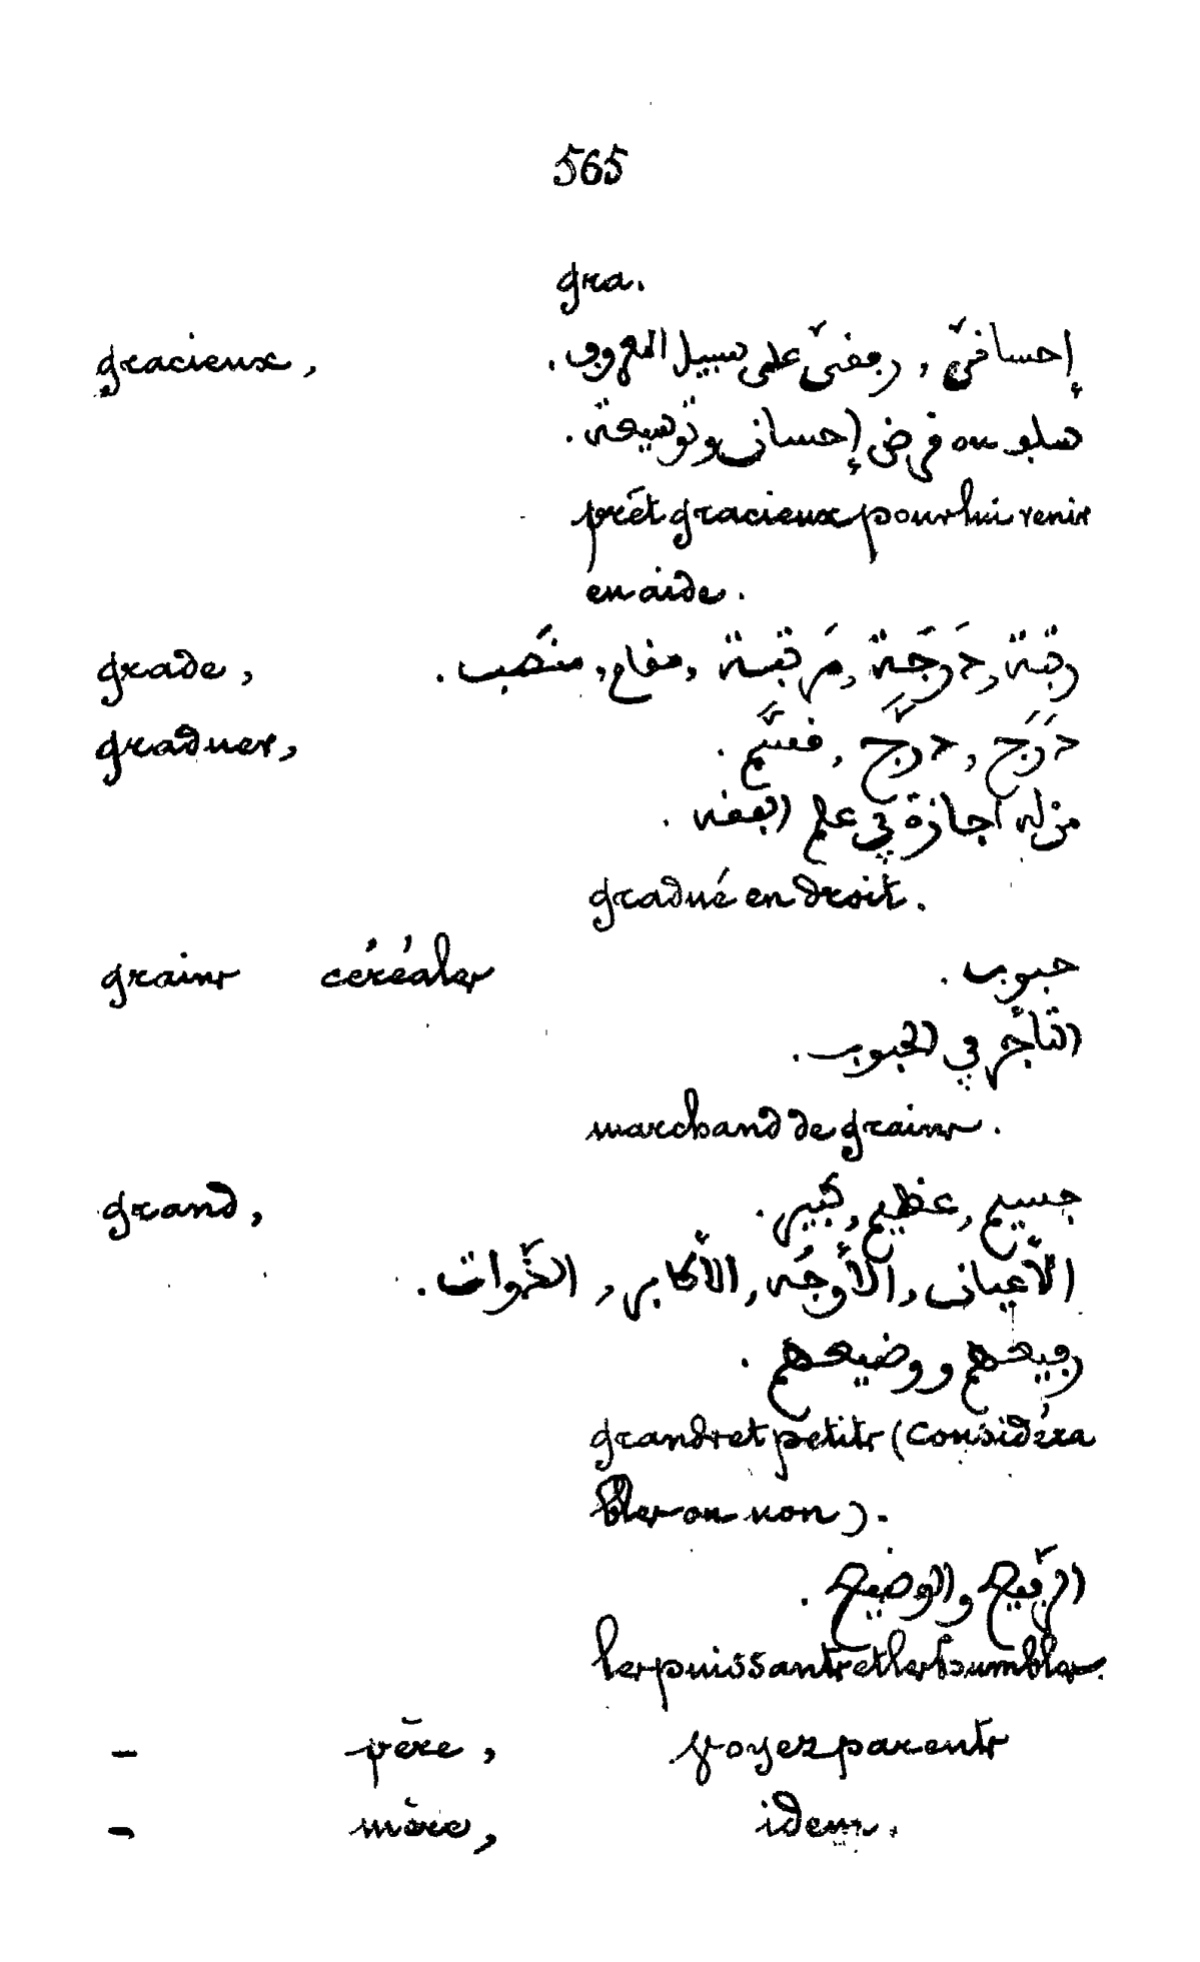 565
gra.
gracieux, إحسانيّ , رفقيّ على سبيل المعروف.
سلف ou قرض إحسان وتوسعة.
prêt gracieux pour lui venir
en aide.
grade, رتبة, دَرَجَة, مَرتبة, مقام, منصَب.
graduer, دَرَج, درَّج, قسَّم.
من له اجازة في علم الفقه.
gradué en droit.
grains céréales حبوب.
التّاجر في الحبوب.
marchand de grains.
grand, جسيم, عظيم, كبير.
الأعيان, الأوجُه, الأكابر, الذّوات.
رفيعهم ووضيعهم.
grands et petits (considéra
bles ou non).
الرّفيع والوضيع.
les puissants et les humbles.
– père, voyez parents
– mère, idem.